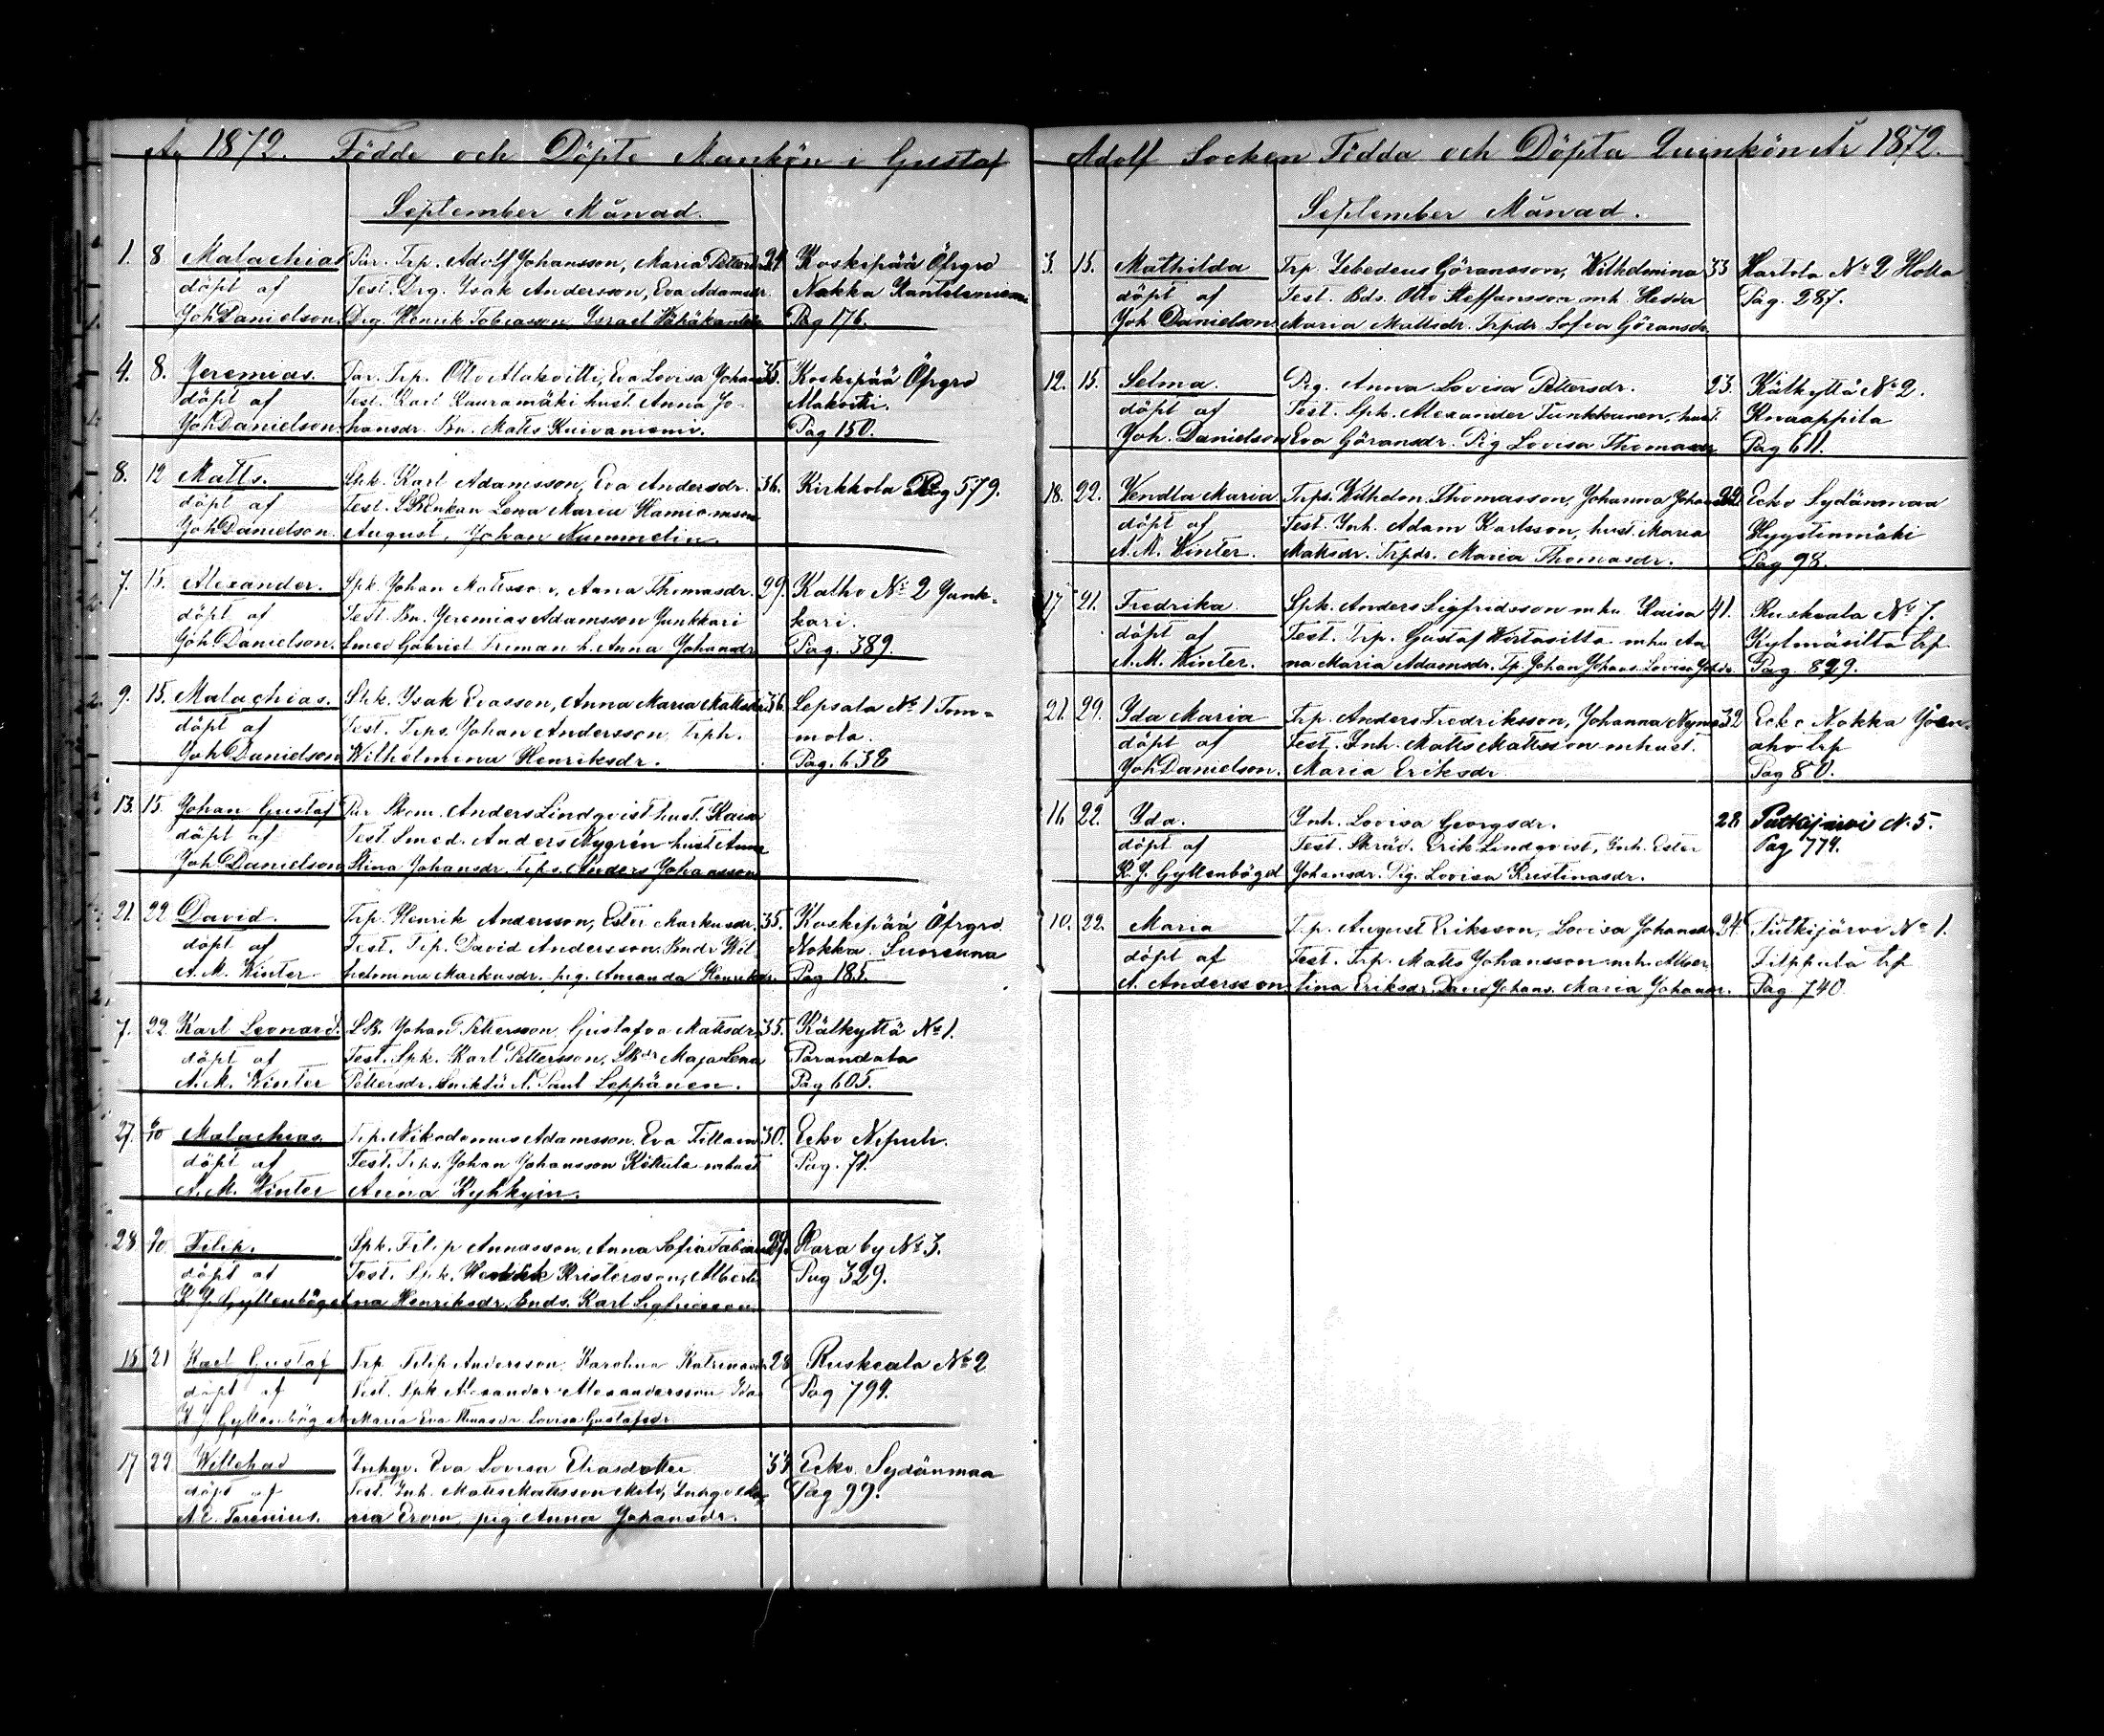 År 1872. Födde och Döpte Mankön i Gustaf
September Månad.
1. 8. Malachias Par. Trp. Adolf Johansson, Maria Pettersdr 24 Koskipää Öfrgrd
döpt af Test. Drg. Isak Andersson, Eva Adamsdr. Nokka Kanteleniemi
Joh Danielson. Drg. Henrik Tobiasson, Israel Pag 176.
4. 8. Jeremias. Par. Trp. Otto Alakoitti, Eva Lovisa Johansd 35. Koskipää Öfrgrd
döpt af Test. Karl Kauramäki hust. Anna Jo- Alakoitti.
Joh Danielson. hansdr. Bn. Matts Kuivaniemi. Pag 150.
8. 12 Matts. Spk. Karl Adamsson, Eva Andersdr. 36. Kirkkola Pag 579.
döpt af Test. Enkan Lena Maria
Joh Danielson. August, Johan Nummelin.
7. 15. Alexander. Spk. Johan Matsson, Anna Thomasdr. 29. Kalho No 2 Junk-
döpt af Test. Bn. Jeremias Adamsson Junkkari kari.
Joh Danielson. Smed Gabriel Friman h. Anna Johansdr Pag. 389.
9. 15. Malachias. Spk. Isak Evasson, Anna Maria Mattsdr 36. Lepsala No 1 Tom-
döpt af Test. Trps. Johan Andersson, Trph. mola.
Joh Danielson Wilhelmina Henriksdr. Pag. 638
13. 15. Johan Gustaf Par Skom. Anders Lindqvist hust. Kaisa
döpt af Test. Smed. Anders Nygrén hust Anna
Joh Danielson Stina Johansdr. Trps. Anders Johansson
21. 22 David. Trp. Henrik Andersson, Ester Markusdr. 35. Koskipää Öfrgrd
döpt af Test. Trp. David Andersson, Bndr Wil- Nokka. Suorenna
A. M. Winter helmina Markusdr. pig. Amanda Henriksdr. Pag 185.
7. 22. Karl Leonard. LB. Johan Pettersson, Gustafva Mattsdr 35. Kälkyttä No 1.
döpt af Test. Spk. Karl Pettersson, Maja Lena Parandala
A. M. Winter Pettersdr. Paul Leppänen. Pag 605.
27. 30 Malachias. Trp. Nikodemus Adamsson. Eva Tillain 30. Ecko Nipuli.
döpt af Test. Trps. Johan Johansson Kökula mhust Pag. 71.
A. M. Winter Anna Kyhkyin.
28. 30. Filip. Spk. Filip Annasson, Anna Sofia Fabiansdr 29. Kara by No 3.
döpt af Test. Spk. Henrik Kristersson, Alberti- Pag 329.
K. J. Gyllenbögel na Henriksdr. Ends. Karl Sigfridsson
15 21 Karl Gustaf Trp. Filip Andersson. Karolina Katrinasdr 28 Ruskeala No 2
döpt af Test. Spk Alexander Alexandersson Ida Pag 799.
K J Gyllenbögel Maria Eva Lovisa Gustafsdr
17 22 Willehad Inhgv. Eva Lovisa Eliasdotter 33 Ecko Sydänmaa
döpt af Test. Inh. Matts Mattsson Inhgv Ma- Pag 99.
A. E. Forenius. ria pig. Anna Johansdr.
Adolf Socken Födda och Döpta Quinkön År 1872.
September Månad.
3. 15. Mathilda Trp. Zebedeus Göransson, Wilhelmina 33 Hartola No 2 Hotta
döpt af Test. Bds. Otto Steffansson mh. Hedda Pag. 287.
Joh Danielson. Maria Mattsdr. Trpdr. Sofia Göransdr
12. 15. Selma. Pig. Anna Lovisa Pettersdr. 23. Kälkyttä No 2.
döpt af Test. Spk. Alexander Tunkkunen, hust. Knaappila
Joh. Danielson Eva Göransdr. Pig Lovisa Thomasdr Pag 611.
18. 22. Vendla Maria Trps. Wilhelm Thomasson, Johanna Ecko Sydänmaa
döpt af Test. Inh. Adam Karlsson, hust. Maria Hyystinmäki
A. M. Winter. Mattsdr. Trpdr. Maria Thomasdr. Pag 98.
17 21. Fredrika Spk. Anders Sigfridsson mhu Kaisa 41. Ruskeala No 7.
döpt af Test. Trp. Gustaf mhu An- Kylmäsilta trp
A. M. Winter. na Maria Adamsdr. Tp. Johan Johans. Lovisa Pag. 829.
21. 29. Ida Maria Trp. Anders Fredriksson, Johanna 32 Ecko Nokka Joen-
döpt af Test. Inh. Matts Mattsson mhust. aho trp
Joh Danielson. Maria Eriksdr Pag 80.
16 22. Ida. Inh. Lovisa Georgsdr. 28 Putkijärvi N. 5.
döpt af Test. Skräd. Erik Lindqvist, Inh. Ester Pag 779.
K. J. Gyllenbögel Johansdr. Pig. Lovisa Kristinasdr.
10. 22. Maria Trp. August Eriksson, Lovisa Johansdr 24. Putkijärvi No 1.
döpt af Test. Trp. Matts Johansson mh. Alber- Filppula trp
A. Andersson tina Eriksdr. David Johans. Maria Johansdr. Pag 740.